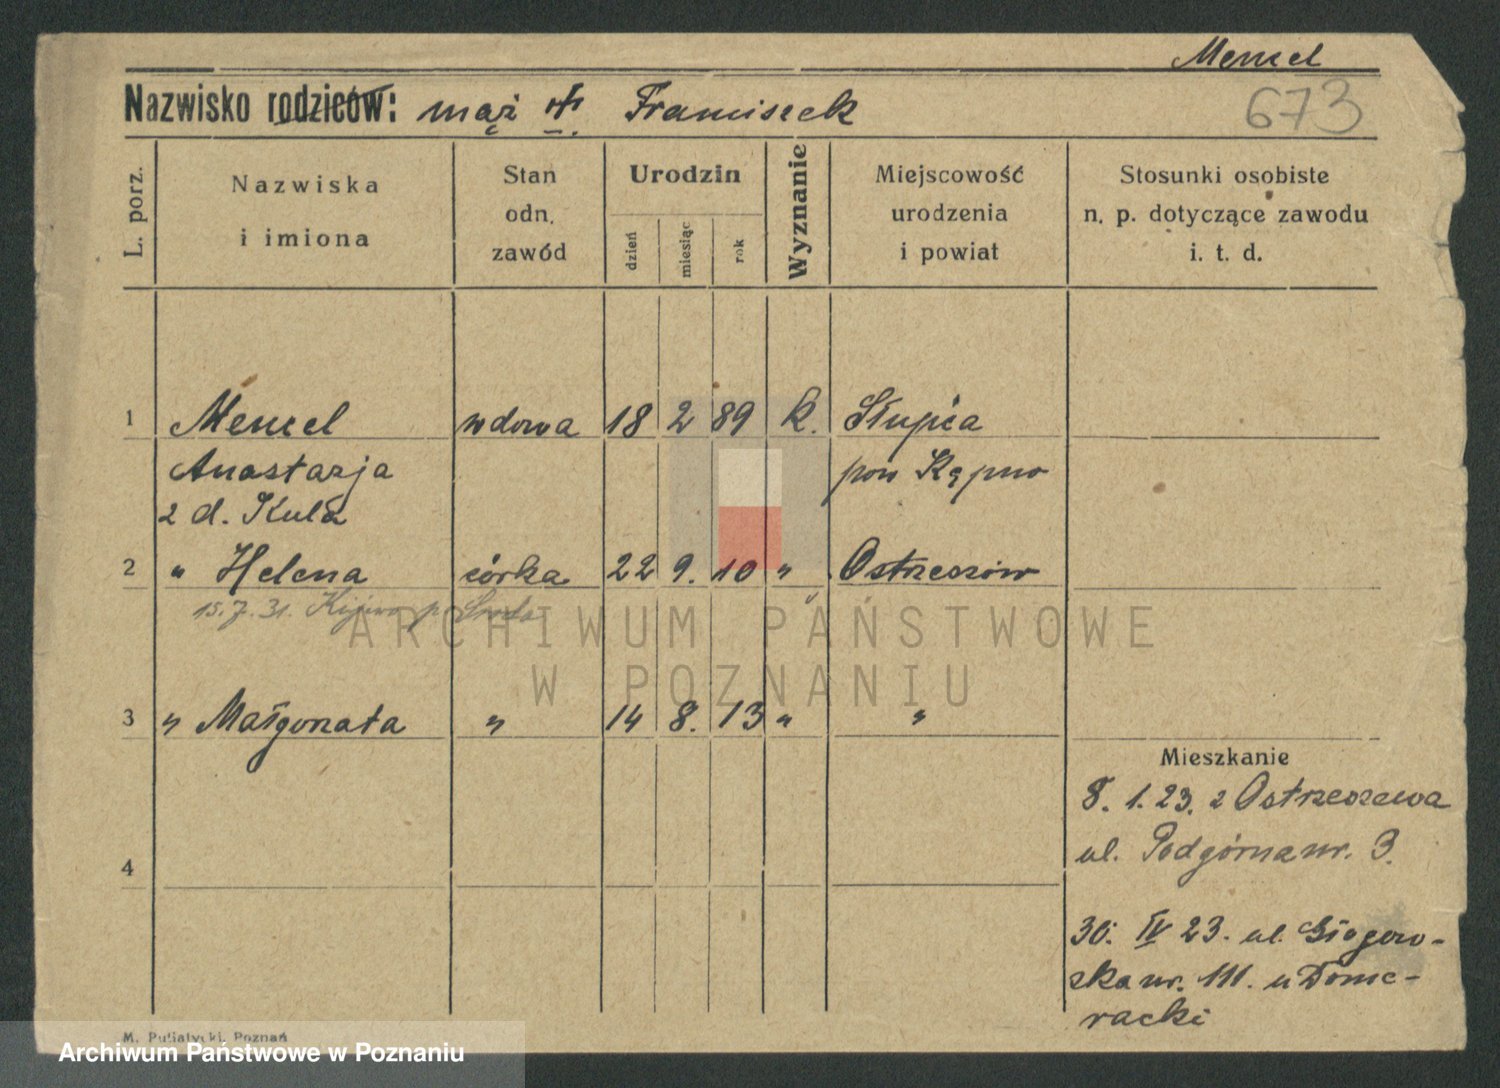 Mencel
Nazwisko rodziców: mąż Franciszek
673
L. porz.
Nazwiska
i imiona
Stan
odn.
zawód
Urodzin
dzień
miesiąc
rok
Wyznanie
Miejscowość
urodzenia
i powiat
Stosunki osobiste
n. p. dotyczące zawodu
i. t. d.
1 Mencel wdowa 18 2 89 k. Słupia
Anastazja pow Kępno
z d. Kula
2 " Helena córka 22 9. 10 " Ostrzeszów
15.7.31. Kijewo p. Środa
3 " Małgorzata " 14 8. 13 " "
Mieszkanie
8. 1. 23. z Ostrzeszewa
ul. Podgórna nr. 3.
4
30. IV 23. ul. Głogow-
ska nr. 111. u Dome-
racki
ARCHIWUM PAŃSTWOWE
W POZNANIU
M. Putiatycki, Poznań
Archiwum Państwowe w Poznaniu